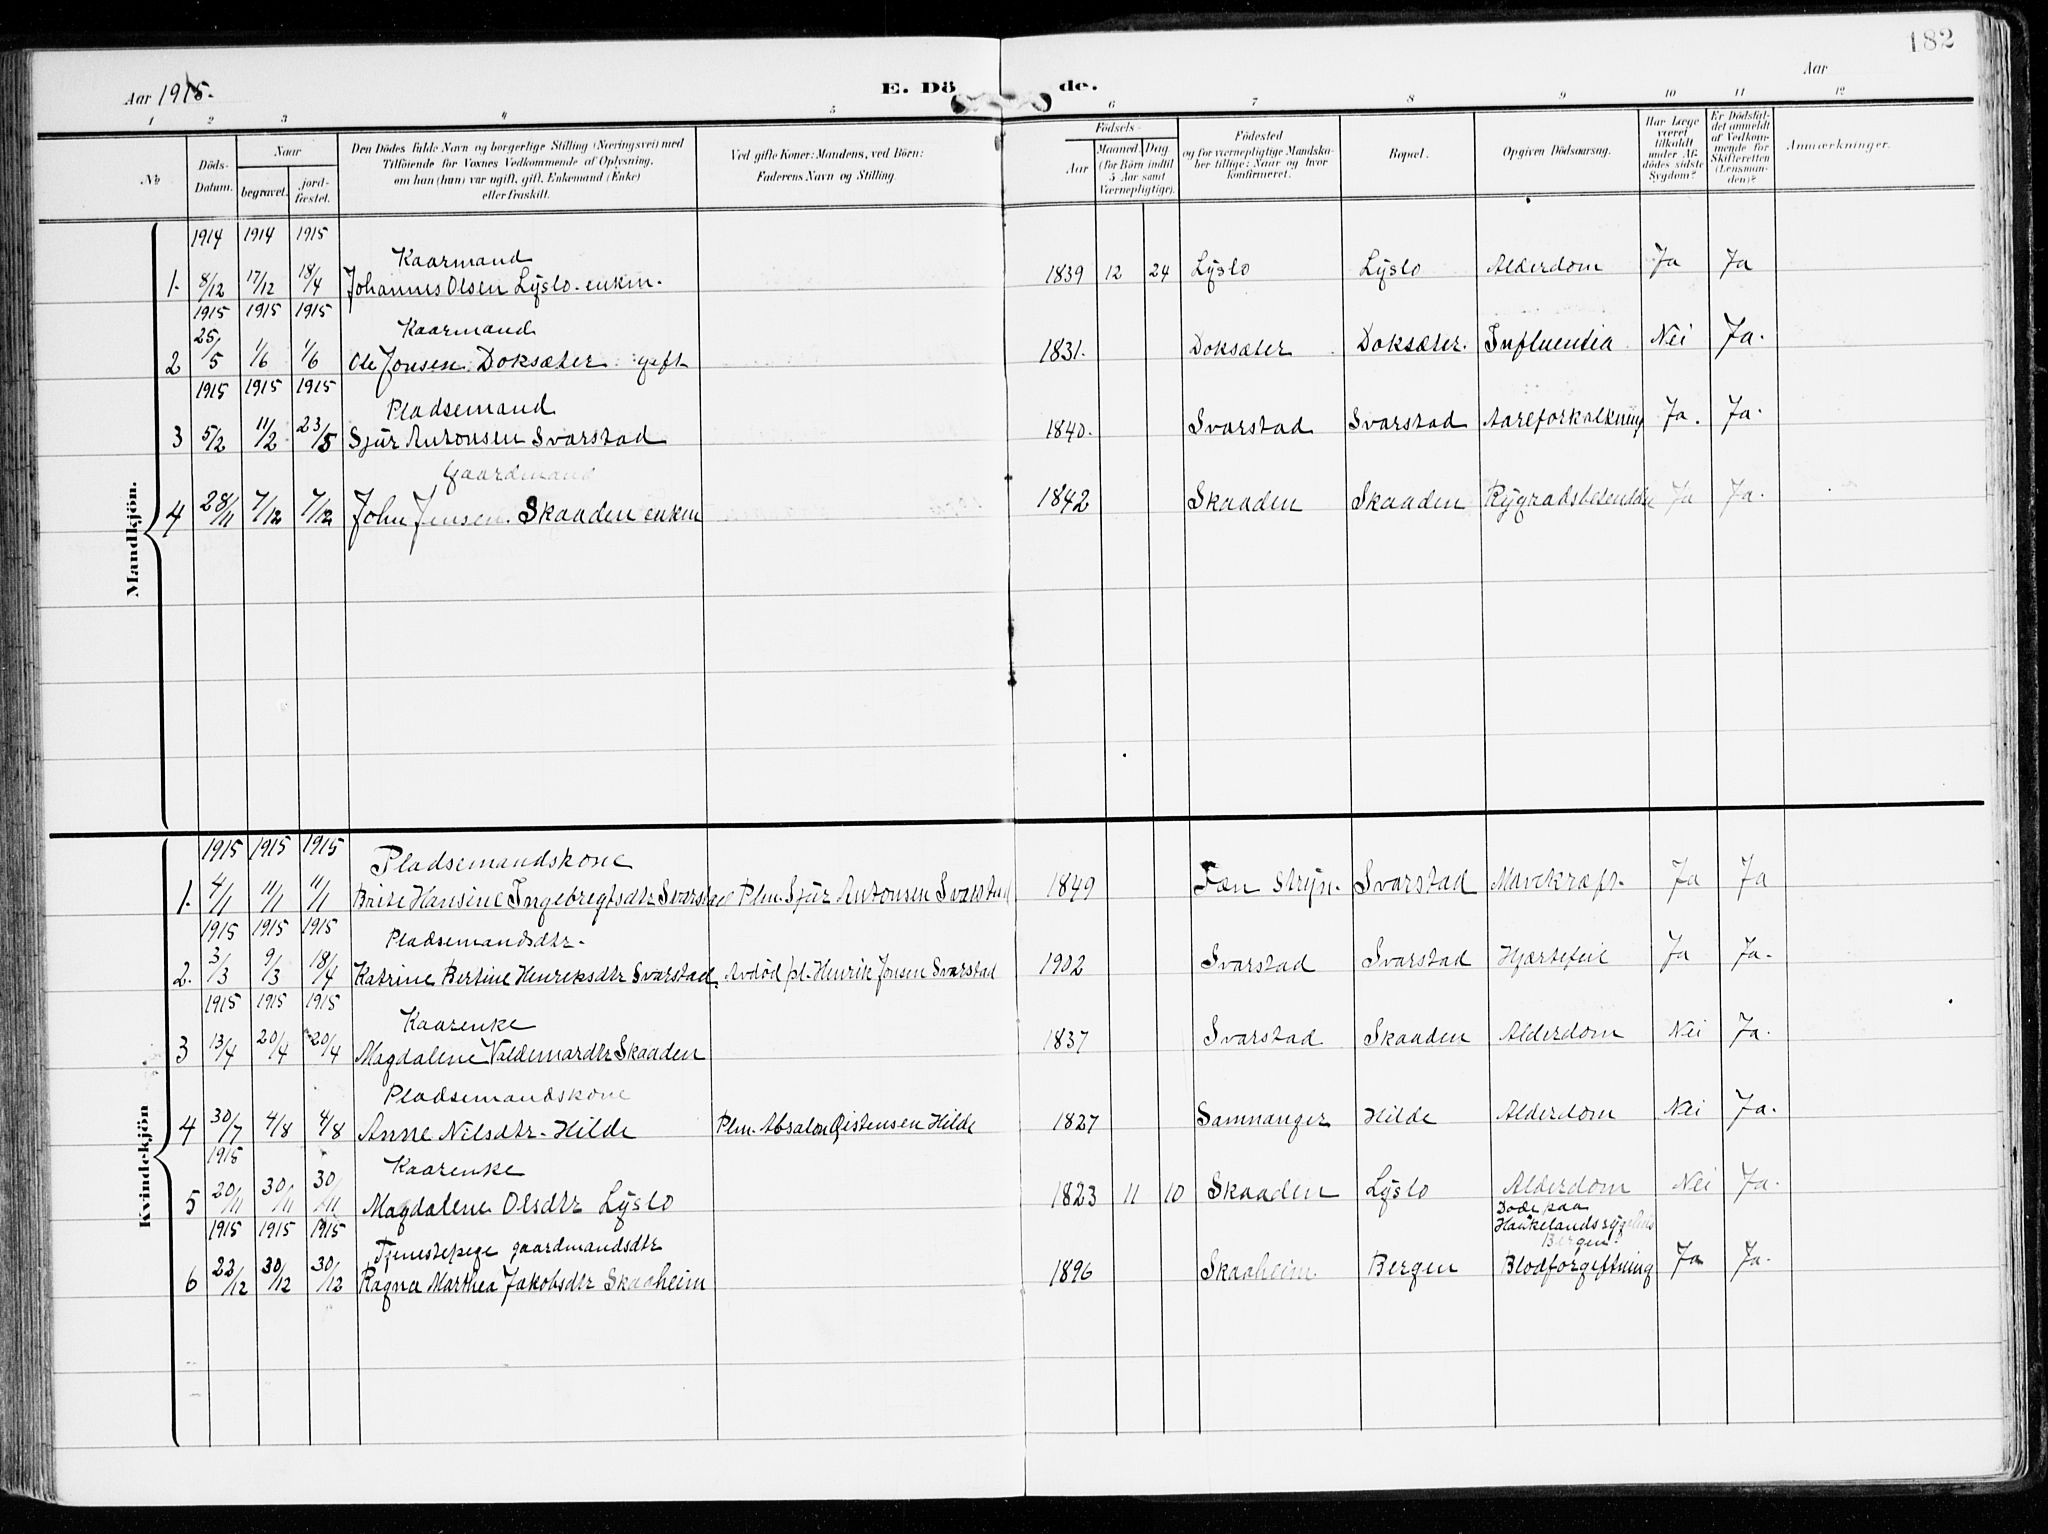 182
Aar 1915.
E. Dö de.
Aar
1 2 3 4 5 6 7 8 9 10 11 12
No
Döds-
Datum.
Naar
begravet.
jord-
fæstet.
Den Dödes fulde Navn og borgerlige Stilling (Næringsvei) med
Tilföiende for Voxnes Vedkommende af Oplysning,
om han (hun) var ugift, gift, Enkemand (Enke)
eller fraskilt.
Ved gifte Koner: Mandens, ved Börn:
Faderens Navn og Stilling.
Födsels-
Aar
Maaned. Dag.
(for Börn indtil
5 Aar samt
Værnepligtige).
Födested
og for værnepligtige Mandska-
ber tillige: Naar og hvor
konfirmeret.
Bopæl.
Opgiven Dödsaarsag.
Har Læge
været
tilkaldt
under Af-
dödes sidste
Sygdom?
Er Dödsfal-
det anmeldt
af Vedkom-
mende for
Skifteretten
(Lensman-
den)?
Anmærkninger.
Mandkjön.
1914 1914 1915
Kaarmand
1. 8/12 17/12 18/4 Johannes Olsen Lyslo. enkm. 1839 12 24 Lyslo Lyslo Alderdom Ja Ja
1915 1915 1915
Kaarmand
2 25/5 1/6 1/6 Ole Jonsen Doksæter gift 1831. Doksæter Doksæter. Influentia Nei Ja.
1915 1915 1915
Pladsemand
3 5/2 11/2 23/5 Sjur Antonsen Svarstad 1840. Svarstad Svarstad Aareforkalkning Ja. Ja.
Gaardmand
4 28/11 7/12 7/12 John Jensen Skaaden enkm 1842 Skaaden Skaaden Ja Ja.
Kvindekjön
1915 1915 1915
Pladsemandskone
1. 4/1 11/1 11/1 Brite Hansine Ingebregtsdtr Svarstad Plm. Sjur Antonsen Svarstad 1849 Stryn. Svarstad Mavekræft. Ja Ja
1915 1915 1915
Pladsemandsdtr.
2. 3/3 9/3 18/4 Katrine Bertine Henriksdtr Svarstad. Avdød pl. Henrik Jonsen Svarstad 1902 Svarstad Svarstad Hjertefeil Ja Ja.
1915 1915 1915
Kaarenke
3 13/4 20/4 20/4 Magdalene Valdemardtr Skaaden 1837 Svarstad Skaaden Alderdom Nei Ja.
Pladsemandskone
4 30/7 4/8 4/8 Anne Nilsdtr. Hilde Plm. Absalon Hilde 1827 Samnanger Hilde Alderdom Nei Ja.
1915
Kaarenke
5 20/11 30/11 30/11 Magdalene Olsdtr Lyslo 1823 11 10 Skaaden Lyslo Alderdom Nei Ja.
1915 1915 1915
Tjenestepige gaardmandsdtr
Døde paa
Haukelands sygehus
Bergen.
6 22/12 30/12 30/12 Ragna Marthea Jakobsdtr Skaaheim 1896 Skaaheim Bergen Blodforgiftning Ja Ja.